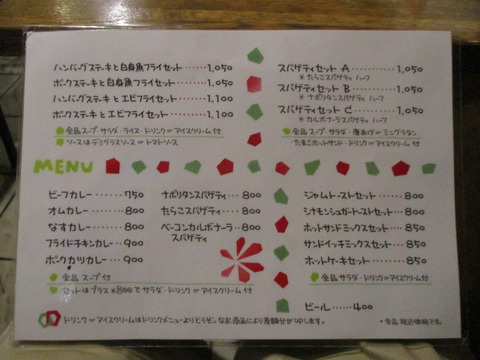 ハンバーグステーキと白身魚フライセット ・・・・・・ 1,050
ポークステーキと白身魚フライセット ・・・・・・ 1,050
ハンバーグステーキとエビフライセット ・・・・・・ 1,100
ポークステーキとエビフライセット ・・・・・・ 1,100
全品スープ・サラダ・ライス・ドリンク or アイスクリーム付
ソースはデミグラスソース or トマトソース
スパゲティセット A ・・・・・・ 1,050
※たらこスパゲティ ハーフ
スパゲティセット B ・・・・・・ 1,050
※ナポリタンスパゲティ ハーフ
スパゲティセット C ・・・・・・ 1,050
※カルボナーラスパゲティ ハーフ
全品スープ・サラダ・唐あげ or ミニグラタン・
たまごホットサンド・ドリンク or アイスクリーム付
MENU
ビーフカレー ・・・・・・ 750
オムカレー ・・・・・・ 800
なすカレー ・・・・・・ 800
フライドチキンカレー ・・・ 900
ポークカツカレー ・・・ 900
全品スープ付
セットはプラス ¥300で サラダ・ドリンク or アイスクリーム付
ナポリタンスパゲティ ・・・・ 800
たらこスパゲティ ・・・・ 800
ベーコンカルボナーラ ・・・ 800
スパゲティ
ジャムトーストセット ・・・・・・ 800
シナモンシュガートーストセット ・・・ 800
ホットサンドミックスセット ・・・ 850
サンドイッチミックスセット ・・・ 850
ホットケーキセット ・・・・・・ 850
全品サラダ・ドリンク or アイスクリーム付
ビール ・・・・ 400
ドリンク or アイスクリームはドリンクメニューよりどうぞ。なお、商品により差額分がUPします。
*全品 税込価格です。